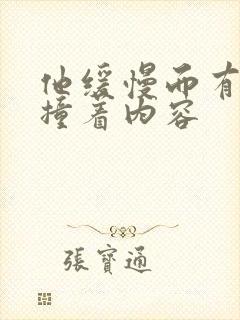 他缓慢而有
撞着内容
張寶通